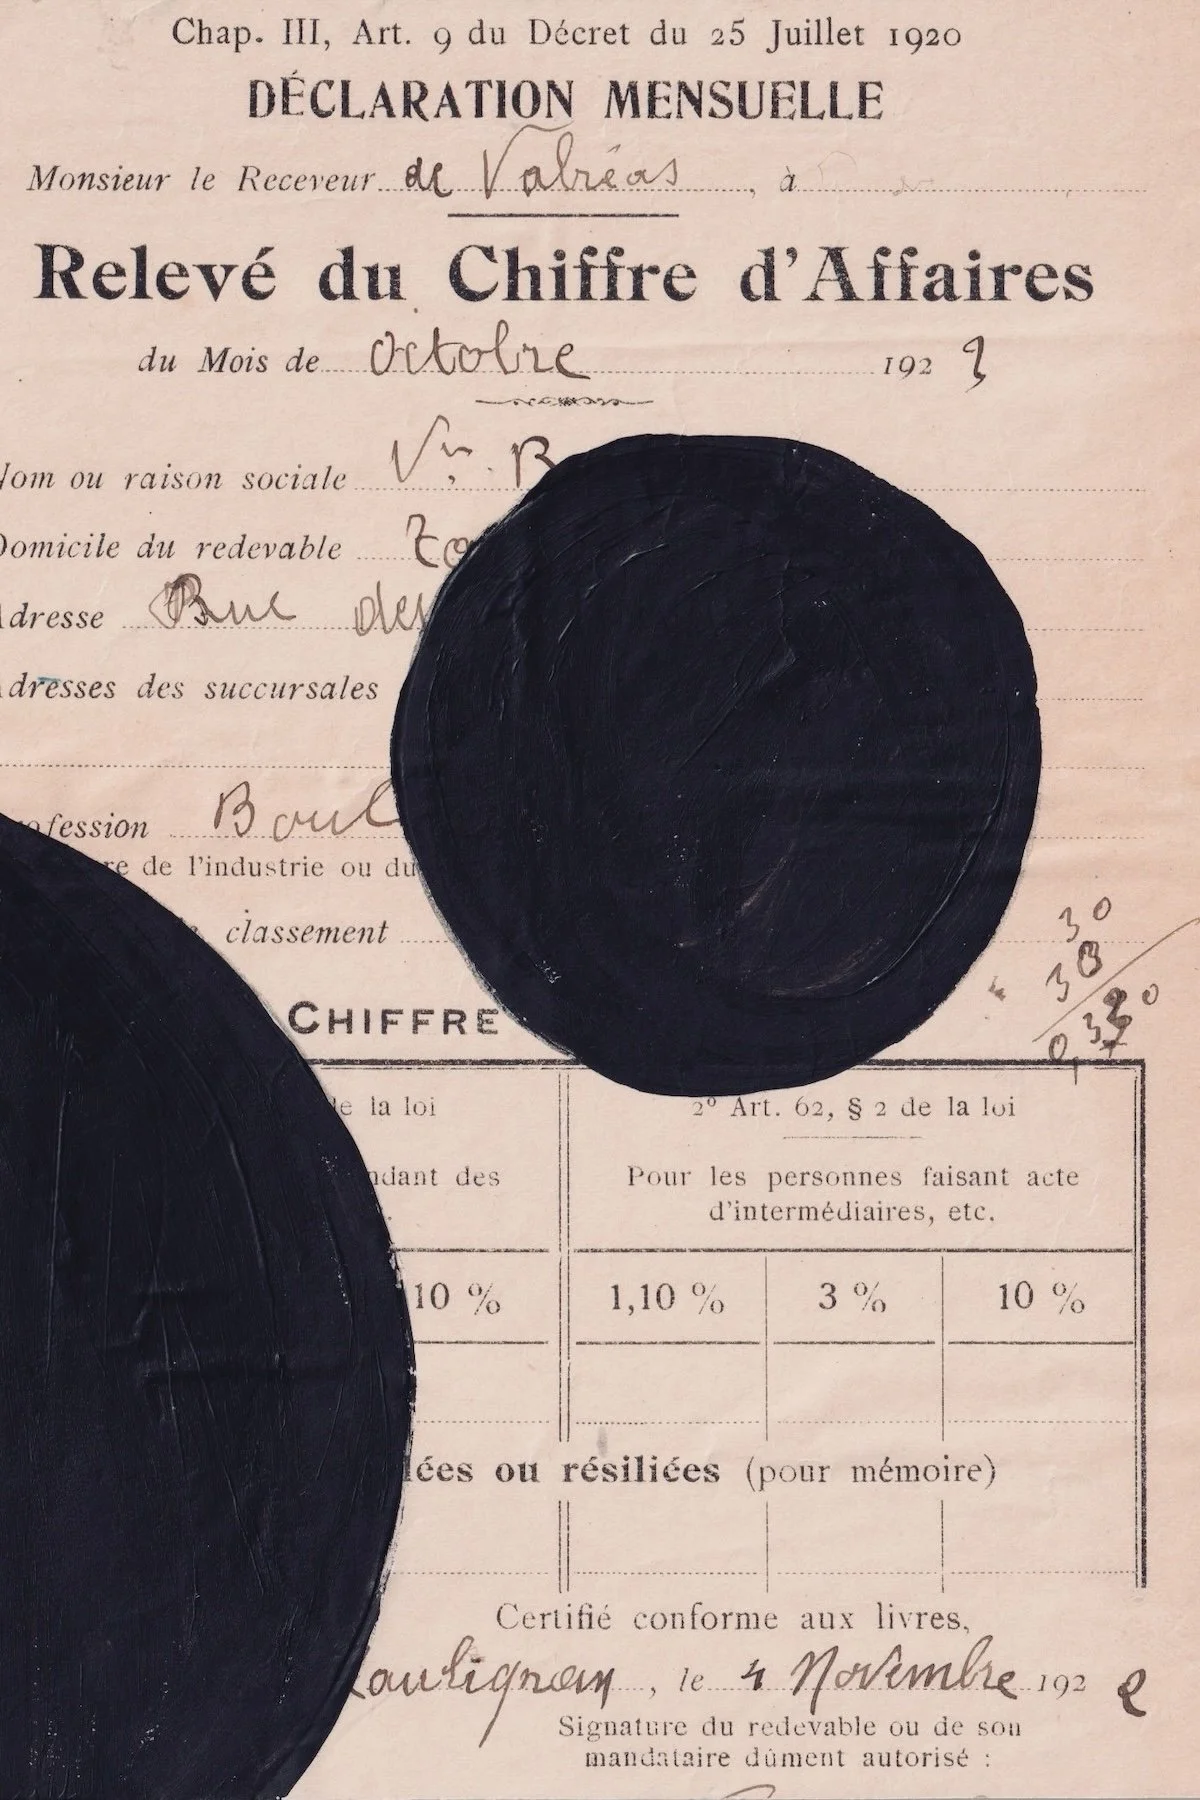 Chap. III, Art. 9 du Décret du 25 Juillet 1920
DÉCLARATION MENSUELLE
Monsieur le Receveur de Valréas, à
Relevé du Chiffre d'Affaires
du Mois de octobre 192
Nom ou raison sociale Vve. B
Domicile du redevable
Adresse Rue des
Adresses des succursales
ofession Boul
re de l'industrie ou du
classement
30
30
CHIFFRE
de la loi
2º Art. 62, § 2 de la loi
ndant des
Pour les personnes faisant acte
d'intermédiaires, etc.
10 % 1,10 % 3 % 10 %
lées ou résiliées (pour mémoire)
Certifié conforme aux livres,
aulignan, le 4 Novembre 1922
Signature du redevable ou de son
mandataire dûment autorisé :